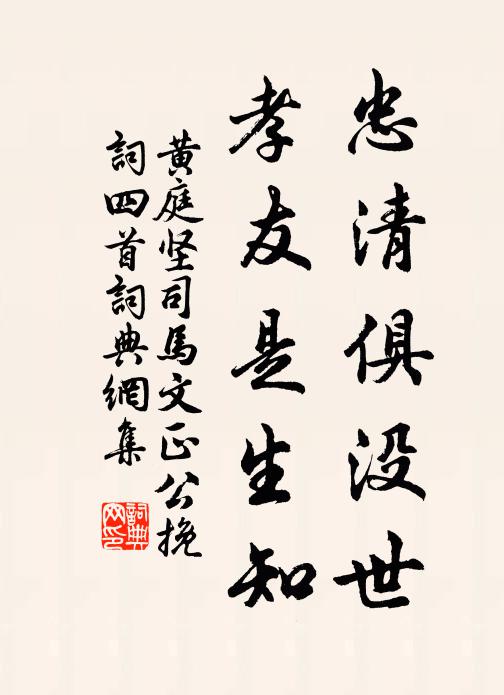 忠清俱没世
孝友是生知
黄庭坚司馬文正公挽
詞四首詞典網集
詞典网印